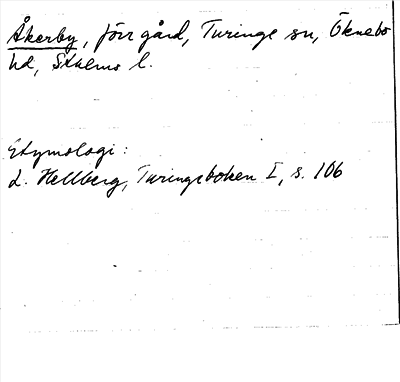 Åkerby, förr gård, Turinge sn, Öknebo
hd, Sthlms l.
Etymologi:
L. Hellberg, Turingeboken I, s. 106